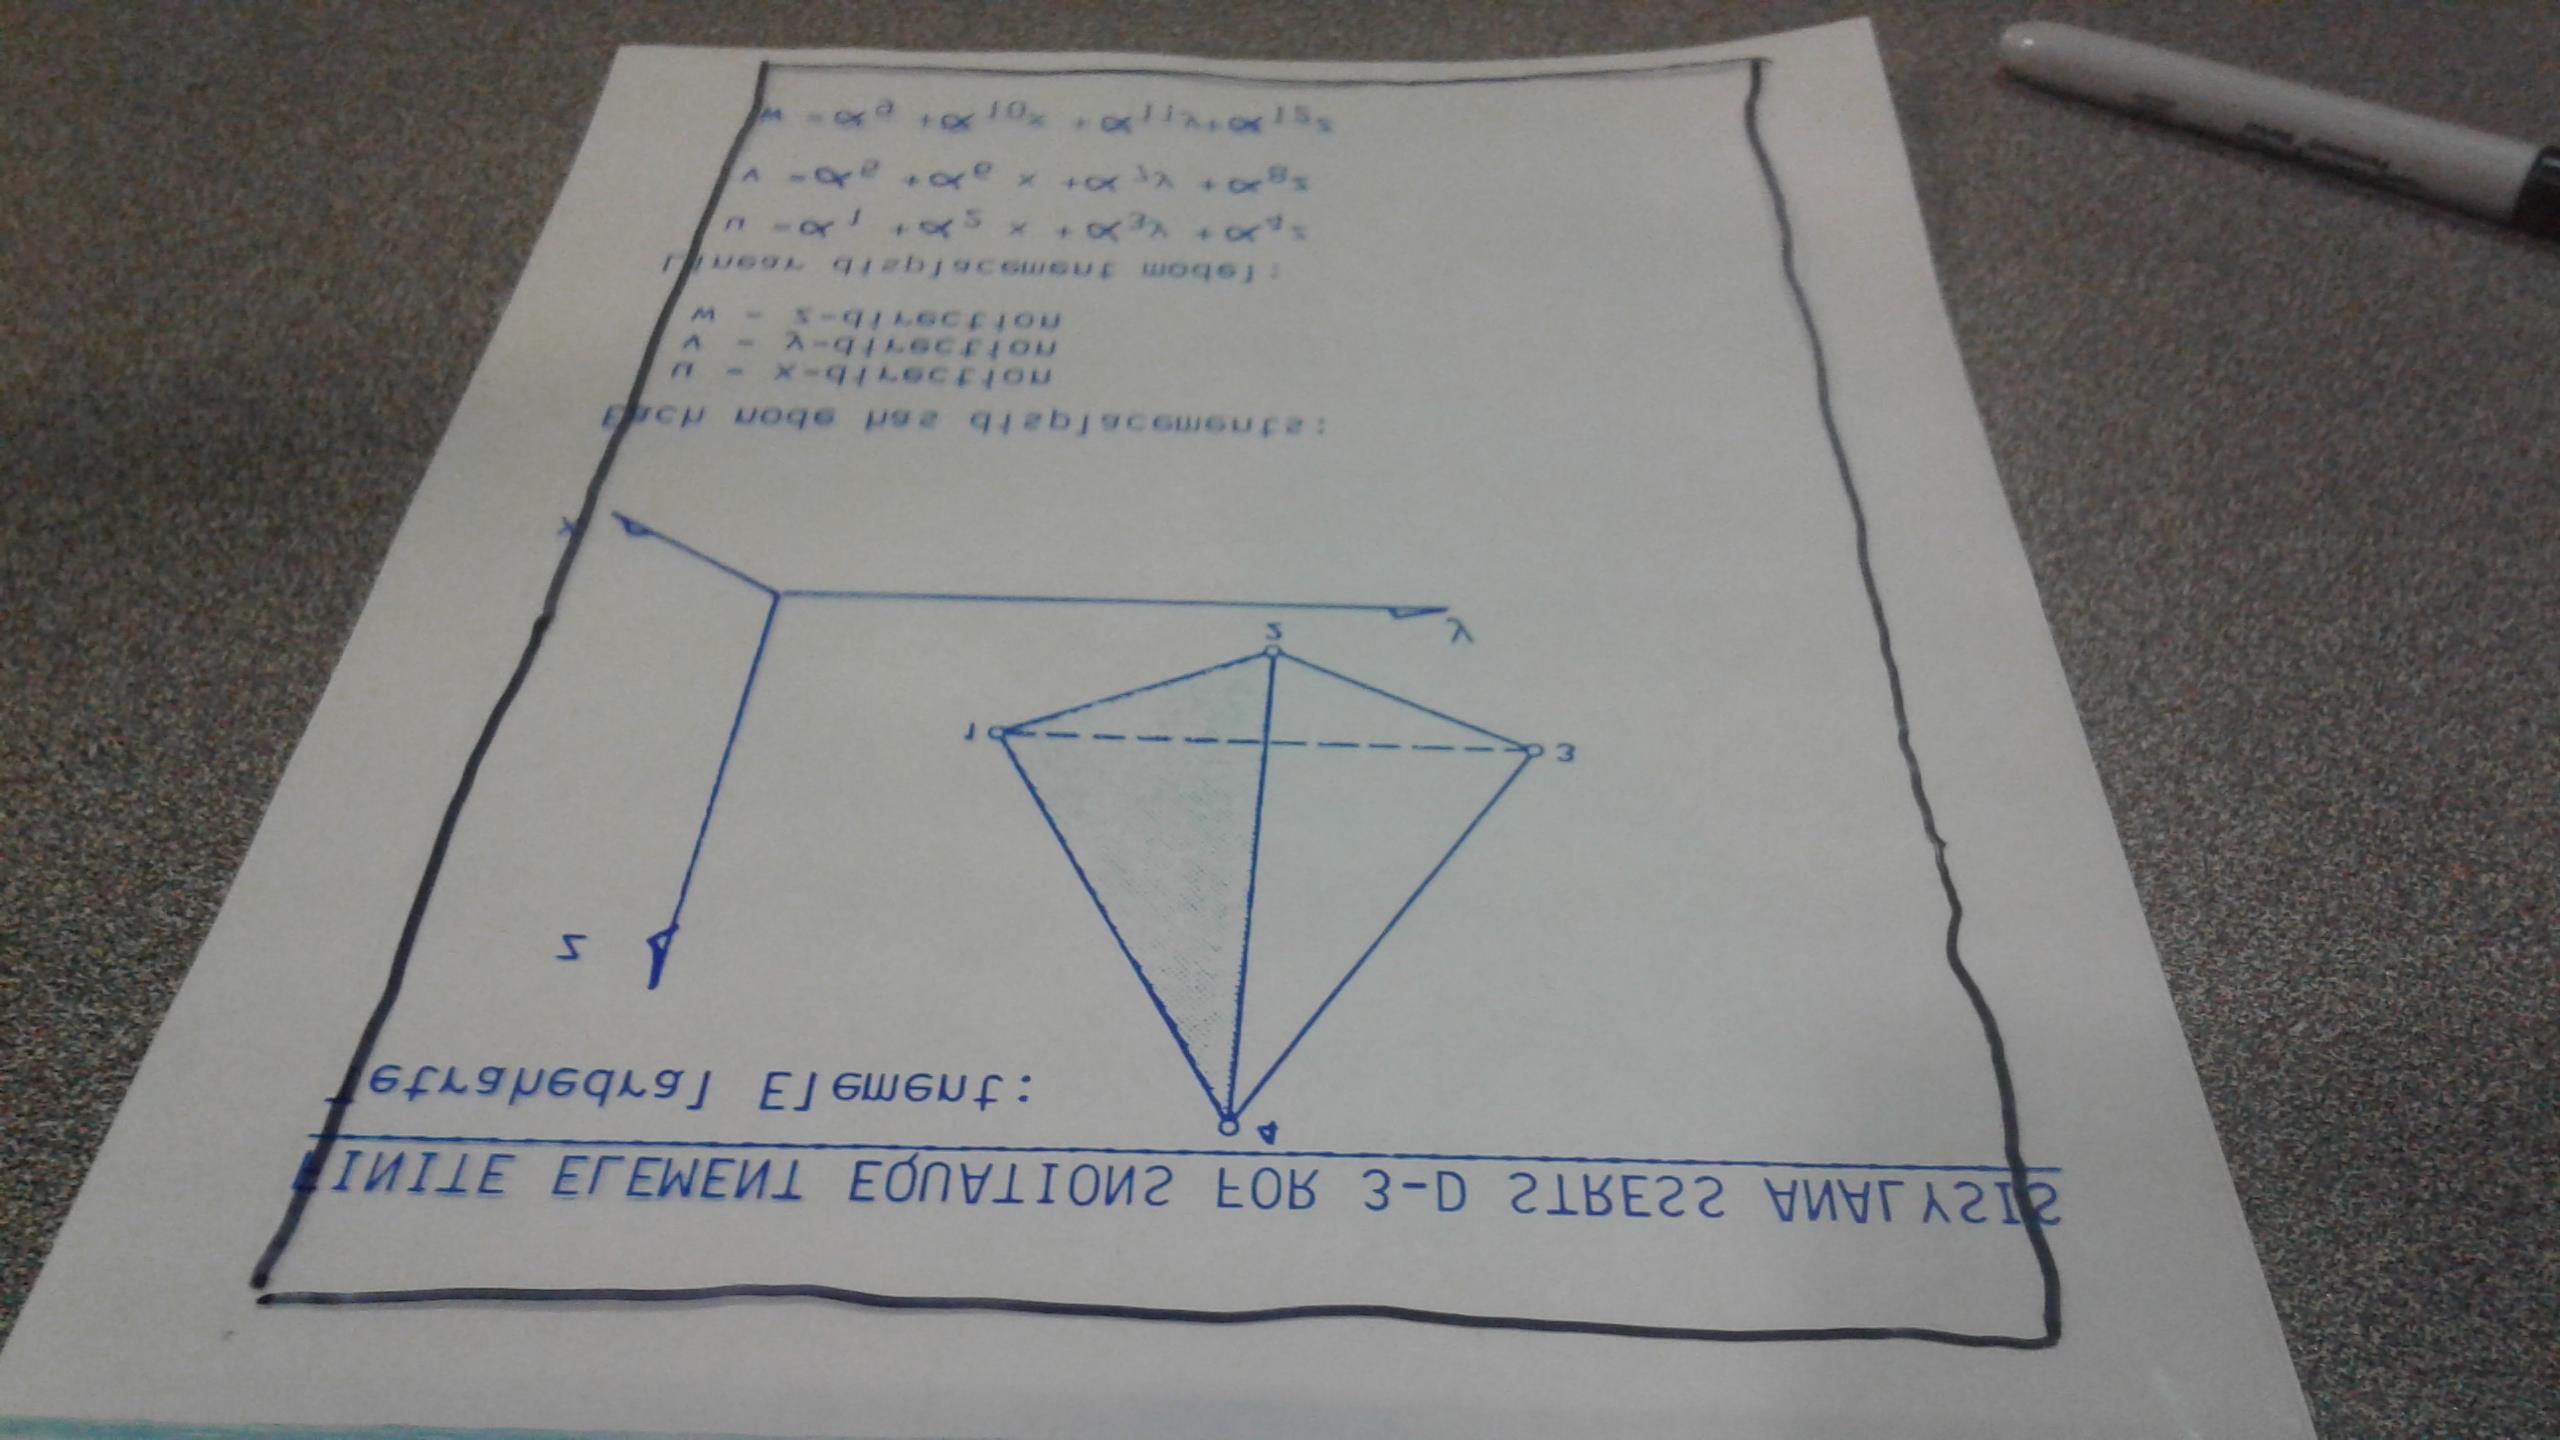 FINITE ELEMENT EQUATIONS FOR 3-D STRESS ANALYSIS
Tetrahedral Element:
4
z
1
3
2
y
x
Each node has displacements:
u - x-direction
v - y-direction
w - z-direction
Linear displacement model:
u =α1 +α2 x +α3y +α4z
v =α5 +α6 x +α7y +α8z
w =α9 +α10x +α11y+α12z